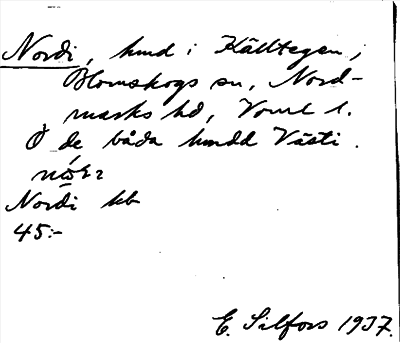 Nordi, hmd i Källtegen,
Blomskogs sn, Nord-
marks hd, Vrml l.
Ö de båda hmdd Västi.
Nordi kb
45:-
E. Silfors 1937.